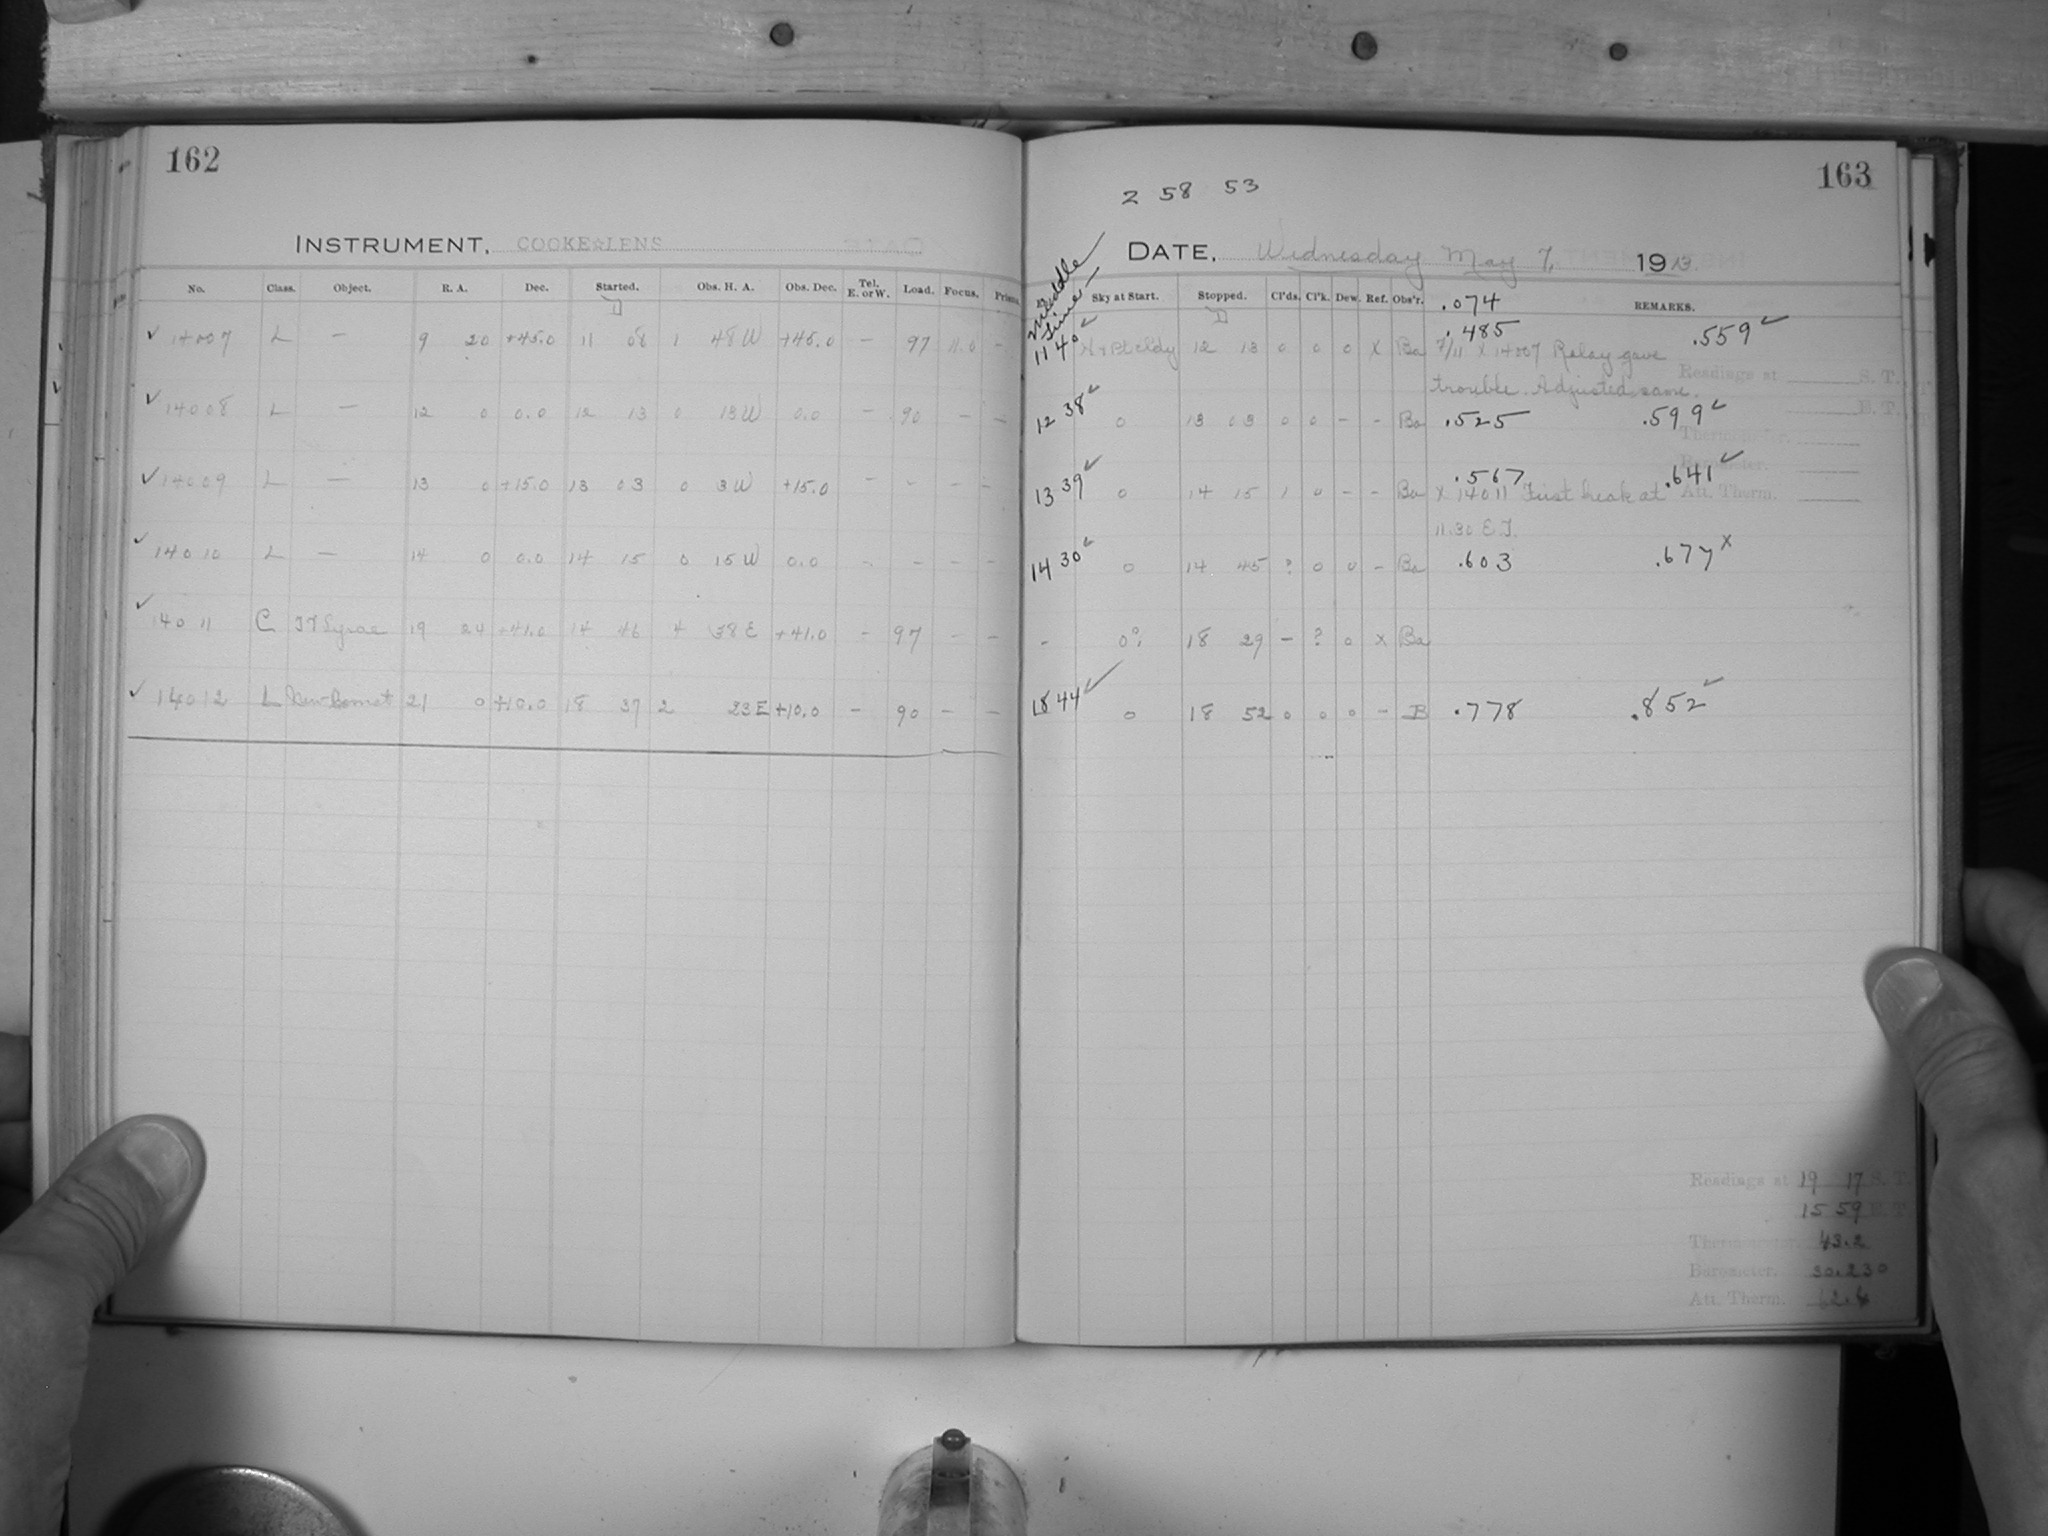 162
INSTRUMENT, COOKE LENS
No. Class. Object. R. A. Dec. Started. Obs. H. A. Obs. Dec. Tel. E. or W. Load. Focus. Prism.
✓ 14007 L — 9 20 +45.0 11 08 1 48 W +45.0 — 97 11.0 —
✓ 14008 L — 12 0 0.0 12 13 0 13 W 0.0 — 90 — —
✓ 14009 L — 13 0 +15.0 13 03 0 3 W +15.0 — — — —
✓ 14010 L — 14 0 0.0 14 15 0 15 W 0.0 — — — —
✓ 14011 C Lyrae 19 24 +41.0 14 46 4 38 E +41.0 — 97 — —
✓ 14012 L New Comet 21 0 +10.0 18 37 2 23 E +10.0 — 90 — —
163
2 58 53
DATE, Wednesday May 7, 1913
Middle Time Sky at Start. Stopped. Cl'ds. Cl'k. Dew. Ref. Obs'r. .074 REMARKS.
.485 .559 ✓
11 40 ✓ 12 13 0 0 0 X Ba X 14007 Relay gave
trouble. Adjusted same.
Readings at S. T.
E. T.
12 38 ✓ 0 13 03 0 0 — — Ba .525 .599 ✓
Thermometer.
Barometer.
.567 .641 ✓
13 39 ✓ 0 14 15 1 0 — — Ba X 14011 First break at
Att. Therm.
11.30 E.T.
14 30 ✓ 0 14 45 ? 0 0 — Ba .603 .677 X
- 18 29 — ? 0 X Ba
18 44 ✓ 0 18 52 0 0 0 — B .778 .852 ✓
Readings at 19 17 S. T.
15 59 E. T.
Thermometer. 43.2
Barometer. 30.230
Att. Therm.